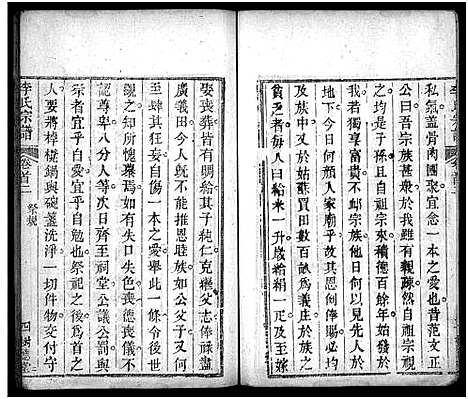 私氣蓋骨肉團聚宜念一本之愛也昔范文正
公曰吾宗族甚衆於我雖有親疎然自祖宗視
之則均是子孫且自祖宗來積德百餘年始發於
我若獨享富貴而不恤宗族異日何以見祖宗於
地下今日何顏入家廟乎故於其俸賜必均
及族人又於姑蘇買田數百畝爲義庄於族之
貧乏者每人日給米一升歲給衣縑一疋及至嫁
娶喪葬皆有賙給其子純仁克繼父志俸祿盡
廣義田今人縱無恩睦族如公父子又何
至肆其狂妄自傷一本之愛舉此一條令族
親之知所愧畏焉有失口失色喪德喪儀
認尊卑八分人等次日齊至祠堂公議公罰與
祭者宜乎自愛宜乎自勉也祭祀之後爲首之
人要將棹櫈鍋與碗蓋洗淨一切件物交付守
李氏宗譜
卷首二
祭規
四
樹德堂
李氏宗譜
卷首二